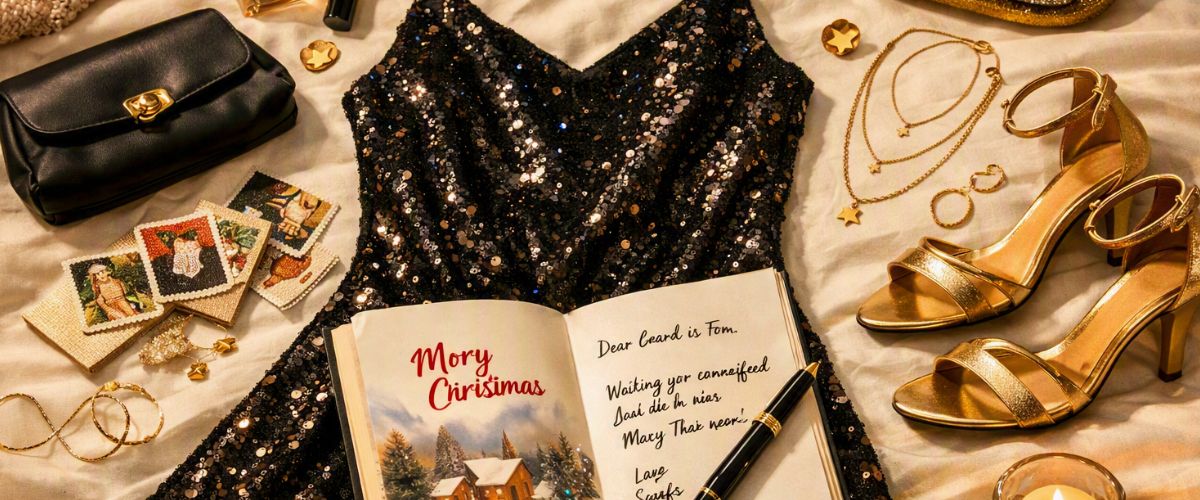 Mory
Chrisimas
Dear Ceard is Fom.
Waiking yor canneifeed
Daat die In nias.
Maxy Thak neor!
Lave
Scurfs